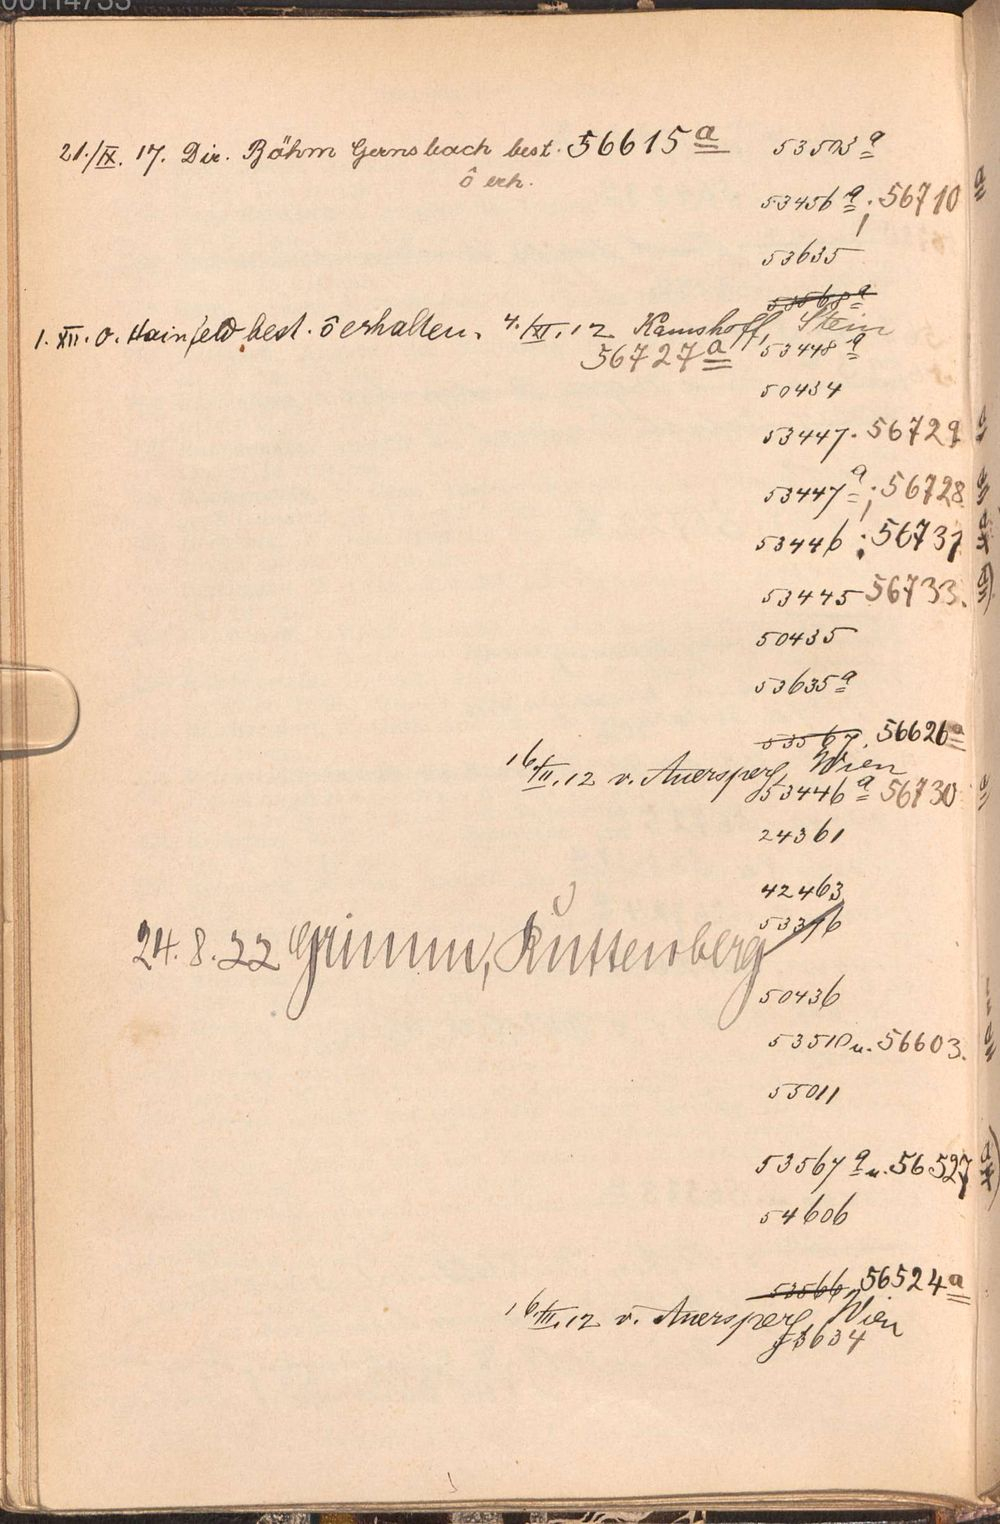 00114733
21./IX. 17. Dir. Böhm Gernsbach best. 56615 a 53503 a
ô erh.
53456 a ; 56710 a
53635
53568 a
1. XII. O. Hainfeld best. ô erhalten. 4./XI. 12 Kamshoff, Stein
56727 a 53448 a
50434
53447. 56729 a
53447 a ; 56728 a
53446 ; 56731
53445 56733.
50435
53635 a
53567, 56626 a
16./XII. 12 v. Auersperg, Wien
53446 a 56730 a
24361
42463
53376
24. 8. 22 Grimm, Kuttenberg
50436
53510 u. 56603.
55011
53567 a u. 56527
54606
53566, 56524 a
16./XII. 12 v. Auersperg, Wien
53634